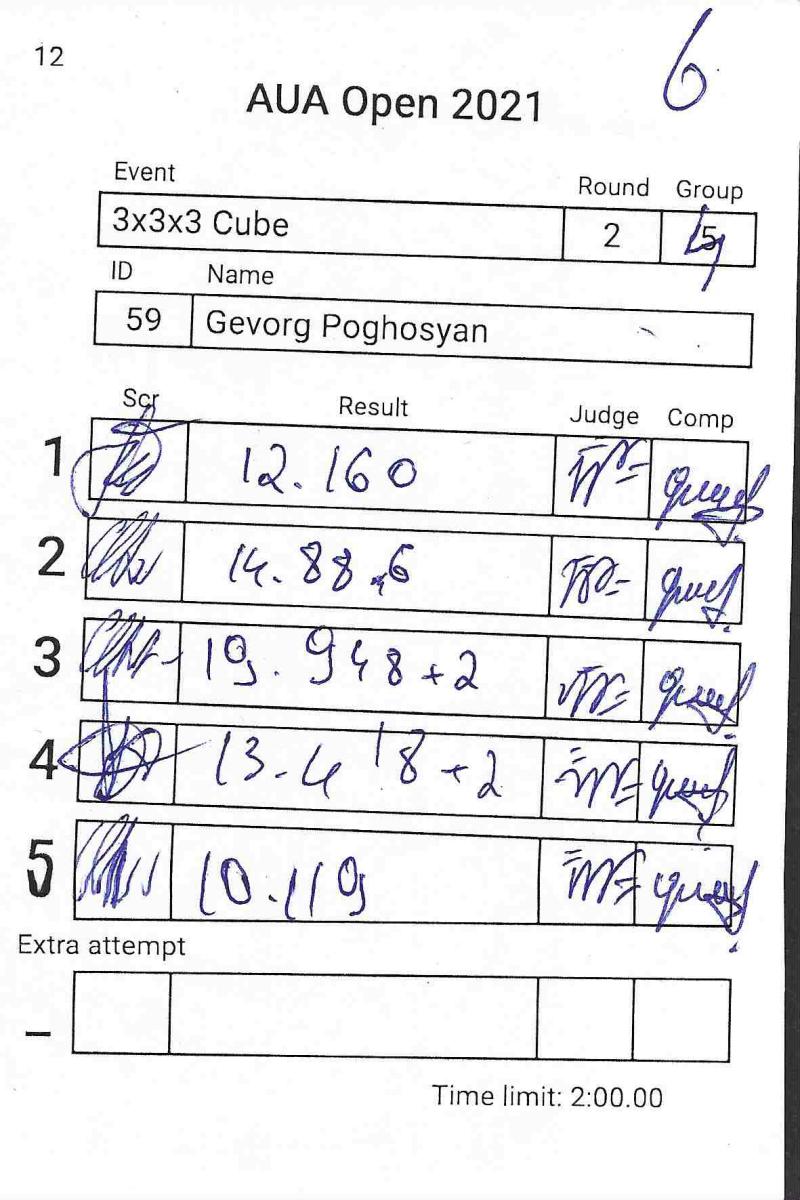 12
6
AUA Open 2021
Event Round Group
3x3x3 Cube 2 5
ID Name
59 Gevorg Poghosyan
Scr Result Judge Comp
1 12.160
2 14.88.6
3 19.948+2
4 13.418+2
5 10.119
Extra attempt
_
Time limit: 2:00.00